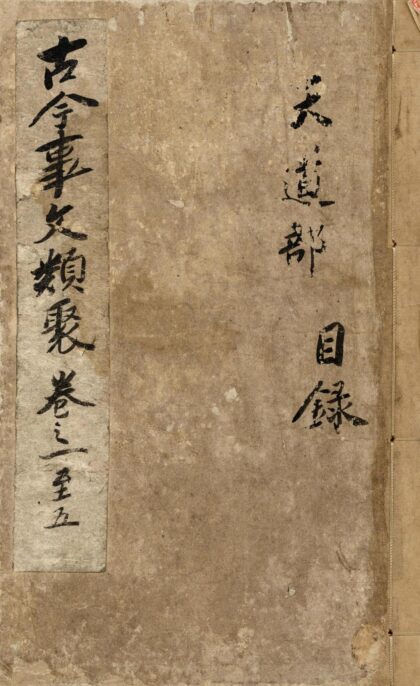 天道部
目録
古今事文類聚 卷之一至五